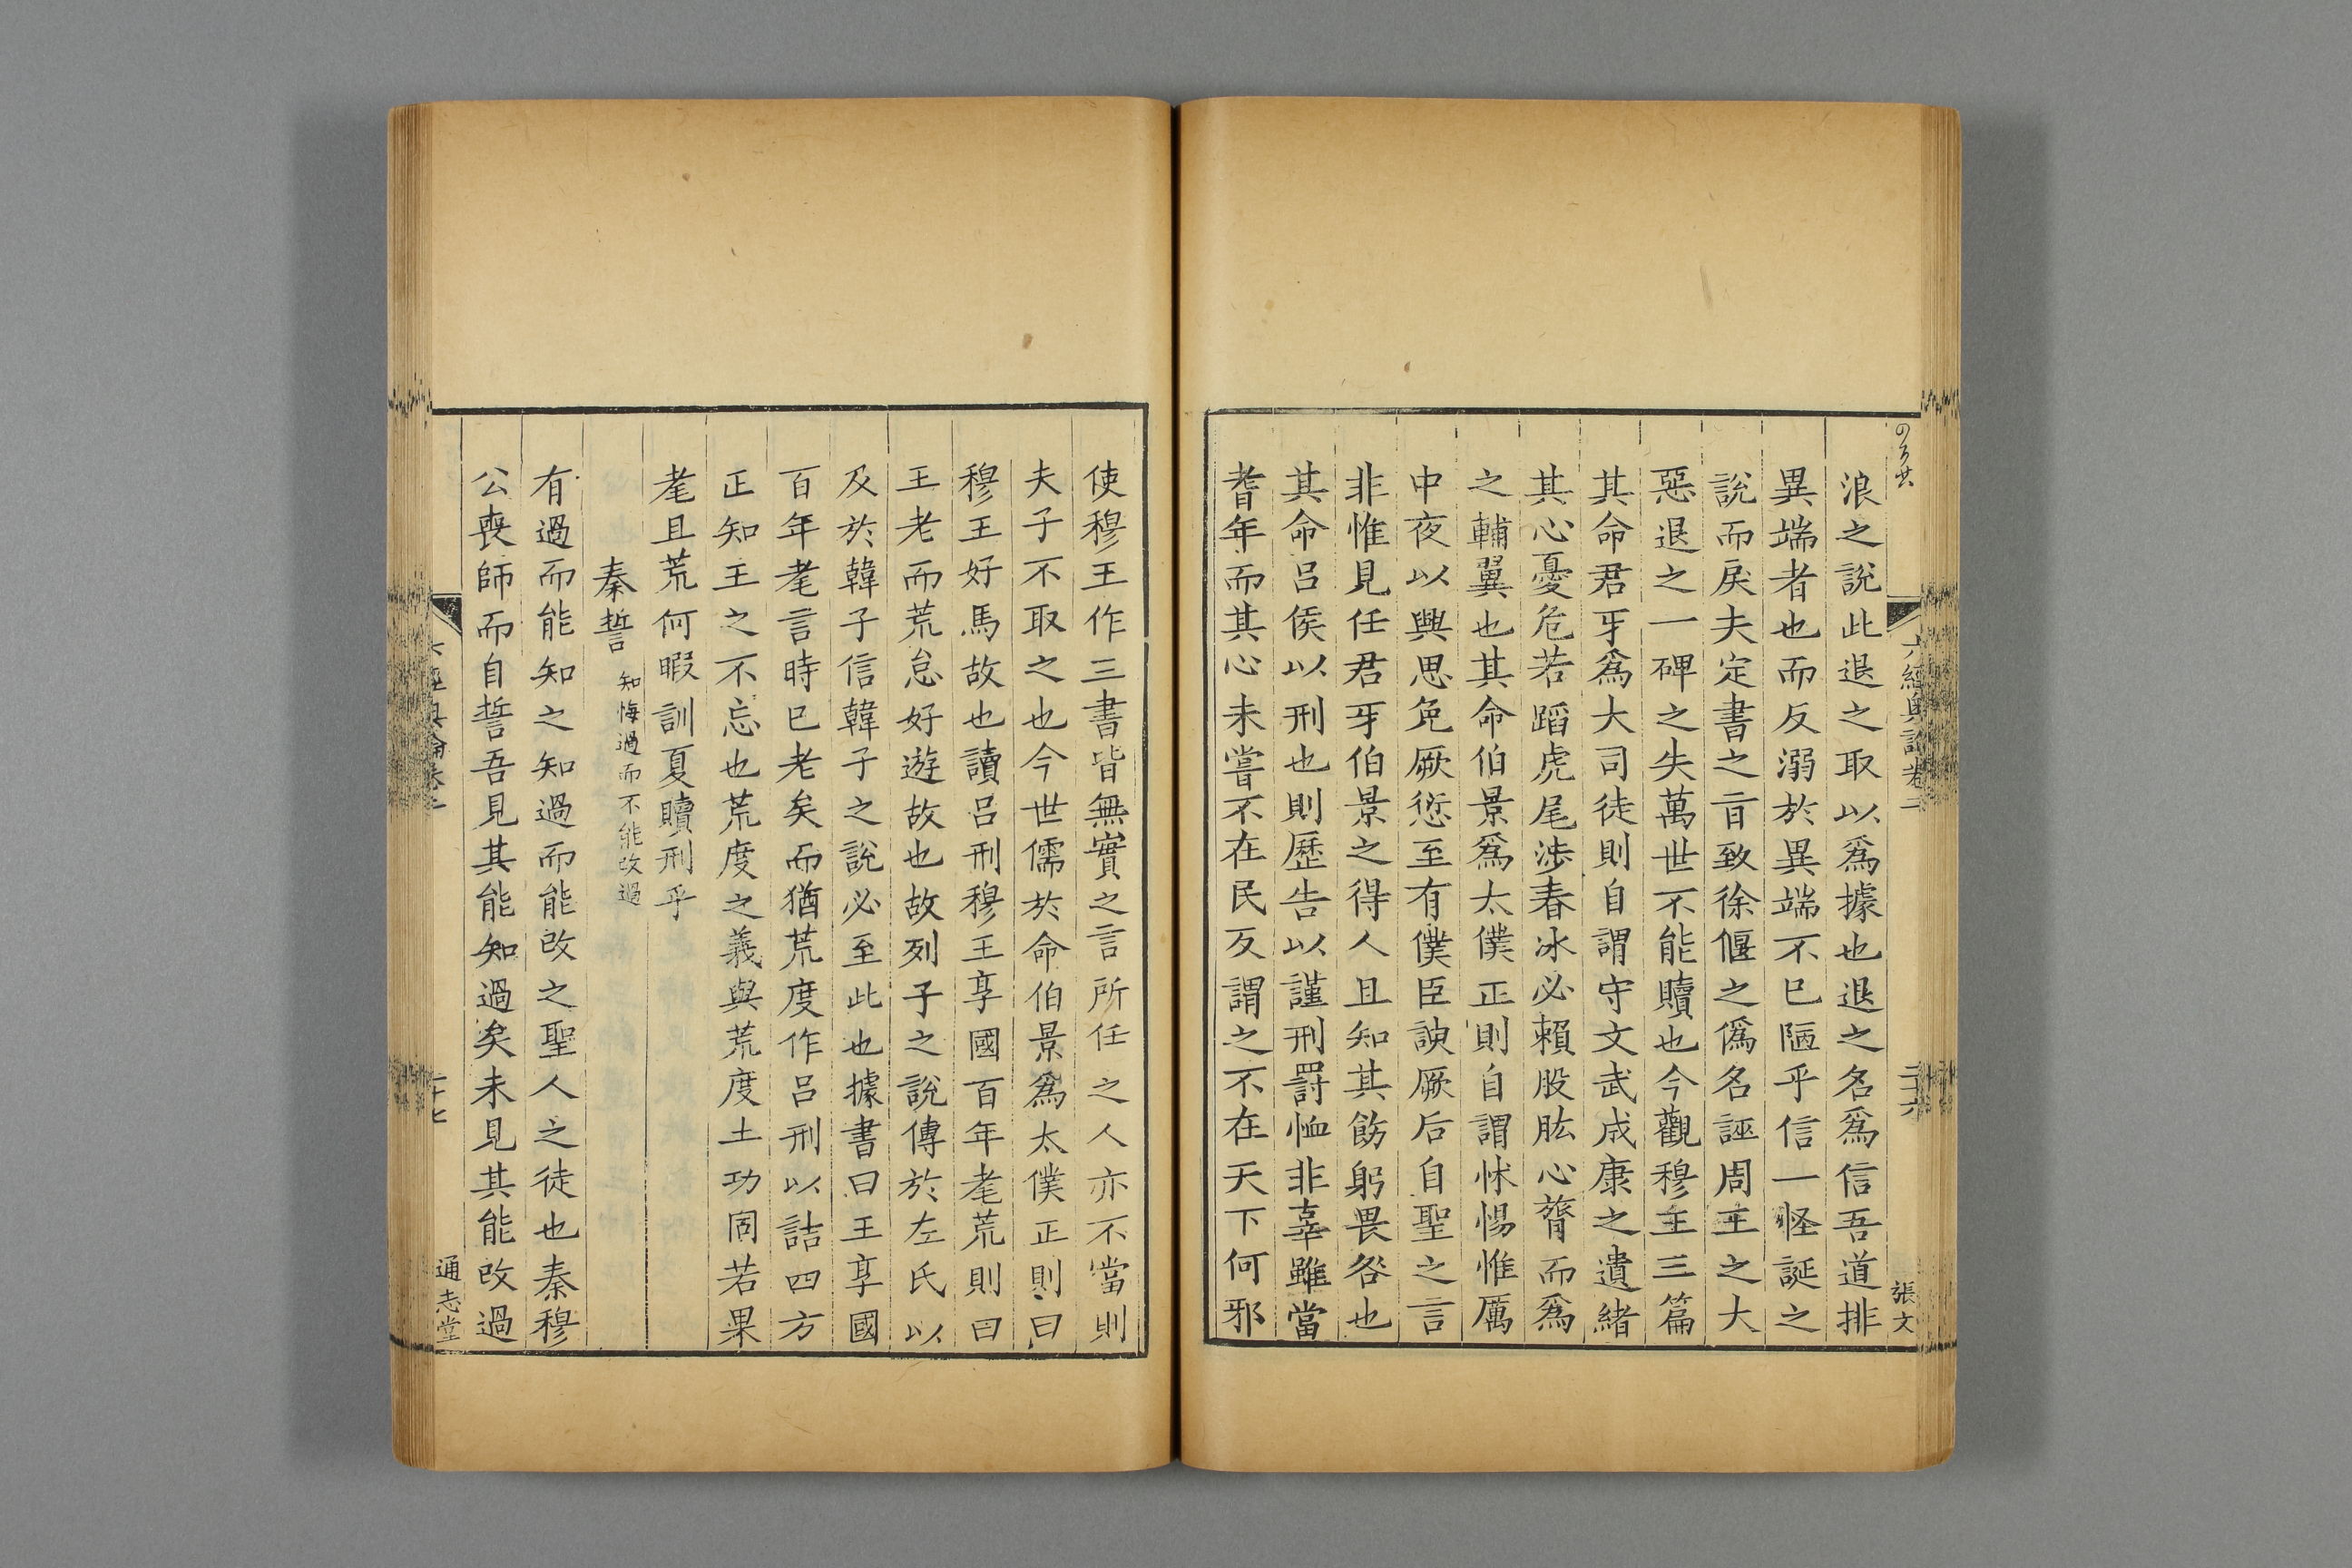 六經奧論卷二
二十六
張文
浪之說此退之取以爲據也退之名爲信吾道排
異端者也而反溺於異端不已陋乎信一怪誕之
說而戾夫定書之㫖致徐偃之僞名誣周王之大
惡退之一碑之失萬世不能贖也今觀穆王三篇
其命君牙爲大司徒則自謂守文武成康之遺緒
其心憂危若蹈虎尾涉春冰必賴股肱心膂而爲
之輔翼也其命伯景爲太僕正則自謂怵惕惟厲
中夜以興思免厥愆至有僕臣諛厥后自聖之言
非惟見任君牙伯景之得人且知其飭躬畏咎也
其命呂侯以刑也則歷告以謹刑罰恤非辜雖當
耆年而其心未嘗不在民反謂之不在天下何邪
使穆王作三書皆無實之言所任之人亦不當則
夫子不取之也今世儒於命伯景爲太僕正則曰
穆王好馬故也讀呂刑穆王享國百年耄荒則曰
王老而荒怠好遊故也故列子之說傳於左氏以
及於韓子信韓子之說必至此也據書曰王享國
百年耄言時已老矣而猶荒度作呂刑以詰四方
正知王之不忘也荒度之義與荒度土功同若果
耄且荒何暇訓夏贖刑乎
秦誓 知悔過而不能改過
有過而能知之知過而能改之聖人之徒也秦穆
公喪師而自誓吾見其能知過矣未見其能改過
六經奧論卷二
二十七
通志堂